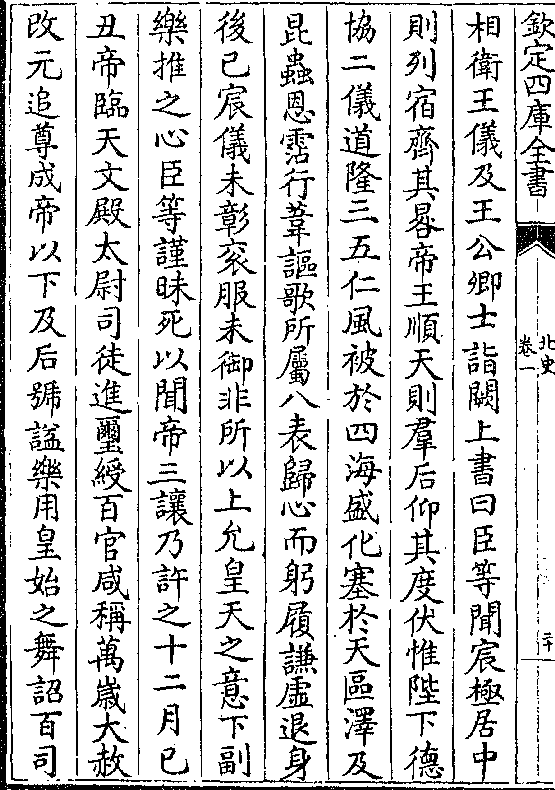 欽定四庫全書
北史
卷一
二十
相衛王儀及王公卿士詣闕上書曰臣等聞宸極居中
則列宿齊其晷帝王順天則羣后仰其度伏惟陛下德
協二儀道隆三五仁風被於四海盛化塞於天區澤及
昆蟲恩霑行葦謳歌所屬八表歸心而躬履謙虛退身
後己宸儀未彰衮服未御非所以上允皇天之意下副
樂推之心臣等謹昧死以聞帝三讓乃許之十二月己
丑帝臨天文殿太尉司徒進璽綬百官咸稱萬嵗大赦
改元追尊成帝以下及后號諡樂用皇始之舞詔百司